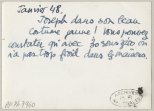 Janvier 48.
Joseph dans son beau
costume jaune ! Vous pouvez
constater qu'avec 30 sous zéro on
n'a pas trop froid dans la maison.
ARCHIVES